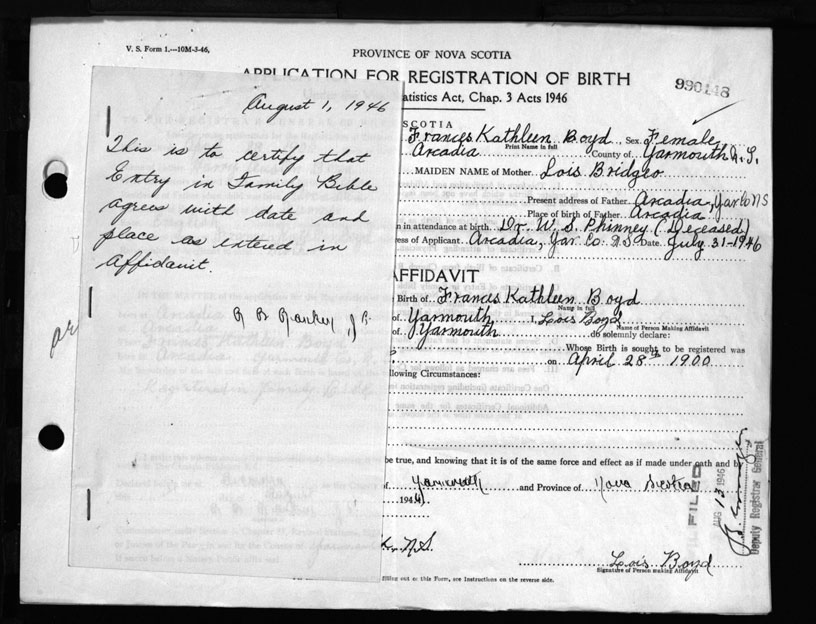 V. S. Form 1.—10M-3-46.
PROVINCE OF NOVA SCOTIA
APPLICATION FOR REGISTRATION OF BIRTH
990148
atistics Act, Chap. 3 Acts 1946
August 1, 1946
This is to certify that
Entry in Family Bible
agrees with date and
place as entered in
Affidavit.
J.P.
SCOTIA
Frances Kathleen Boyd, Sex Female
Print Name in full
Arcadia County of Yarmouth N.S.
MAIDEN NAME of Mother Lois Bridgeo
Present address of Father Arcadia, Yar Co NS
Place of birth of Father Arcadia
n in attendance at birth. Dr. W. S. Phinney (Deceased)
ress of Applicant. Arcadia, Yar. Co. N.S. Date July 31-1946
AFFIDAVIT
Birth of Francis Kathleen Boyd
Name in full
of Yarmouth I, Lois Boyd
Name of Person Making Affidavit
of Yarmouth do solemnly declare:
Whose Birth is sought to be registered was
on April 28th 1900
llowing Circumstances:
be true, and knowing that it is of the same force and effect as if made under oath and by
of Yarmouth and Province of Nova Scotia
194
N.S.
Lois Boyd
Signature of Person making Affidavit
filling out of this Form, see Instructions on the reverse side.
FILED
AUG 13 1946
Deputy Registrar General